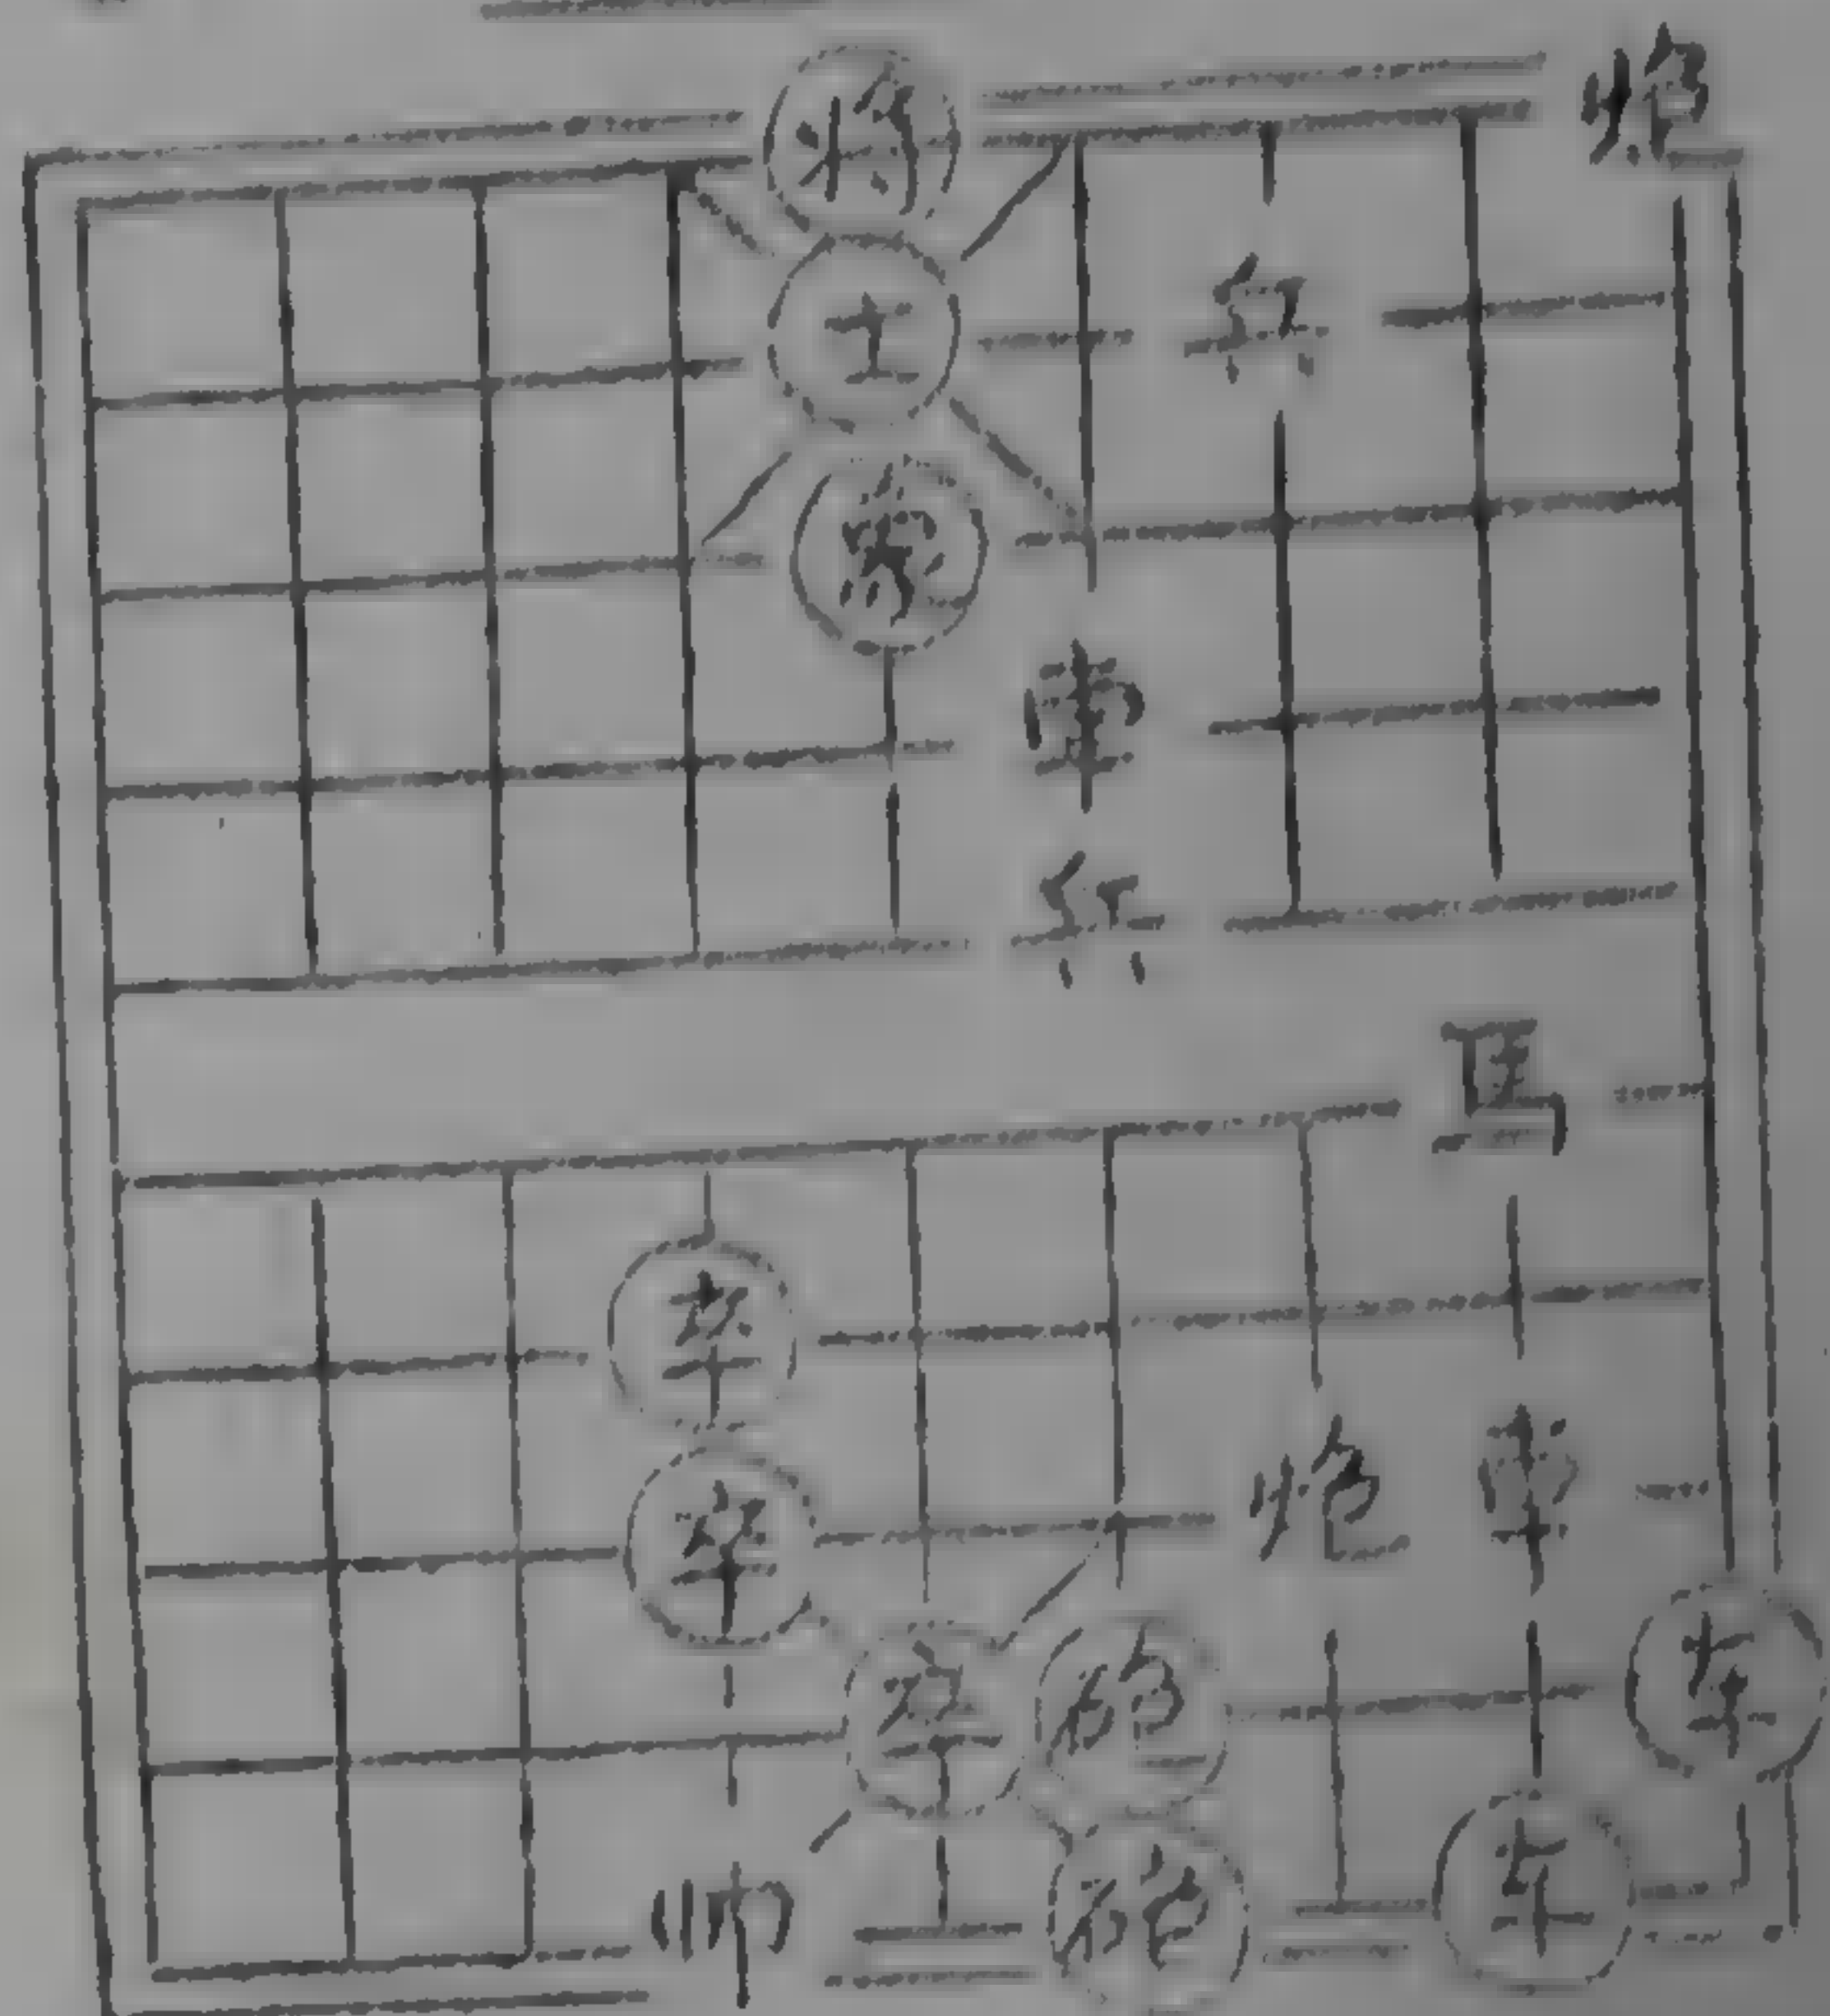 将 炮
士 兵
象
車
兵
馬
卒
卒 炮 車
卒 砲 车
帅 砲 车